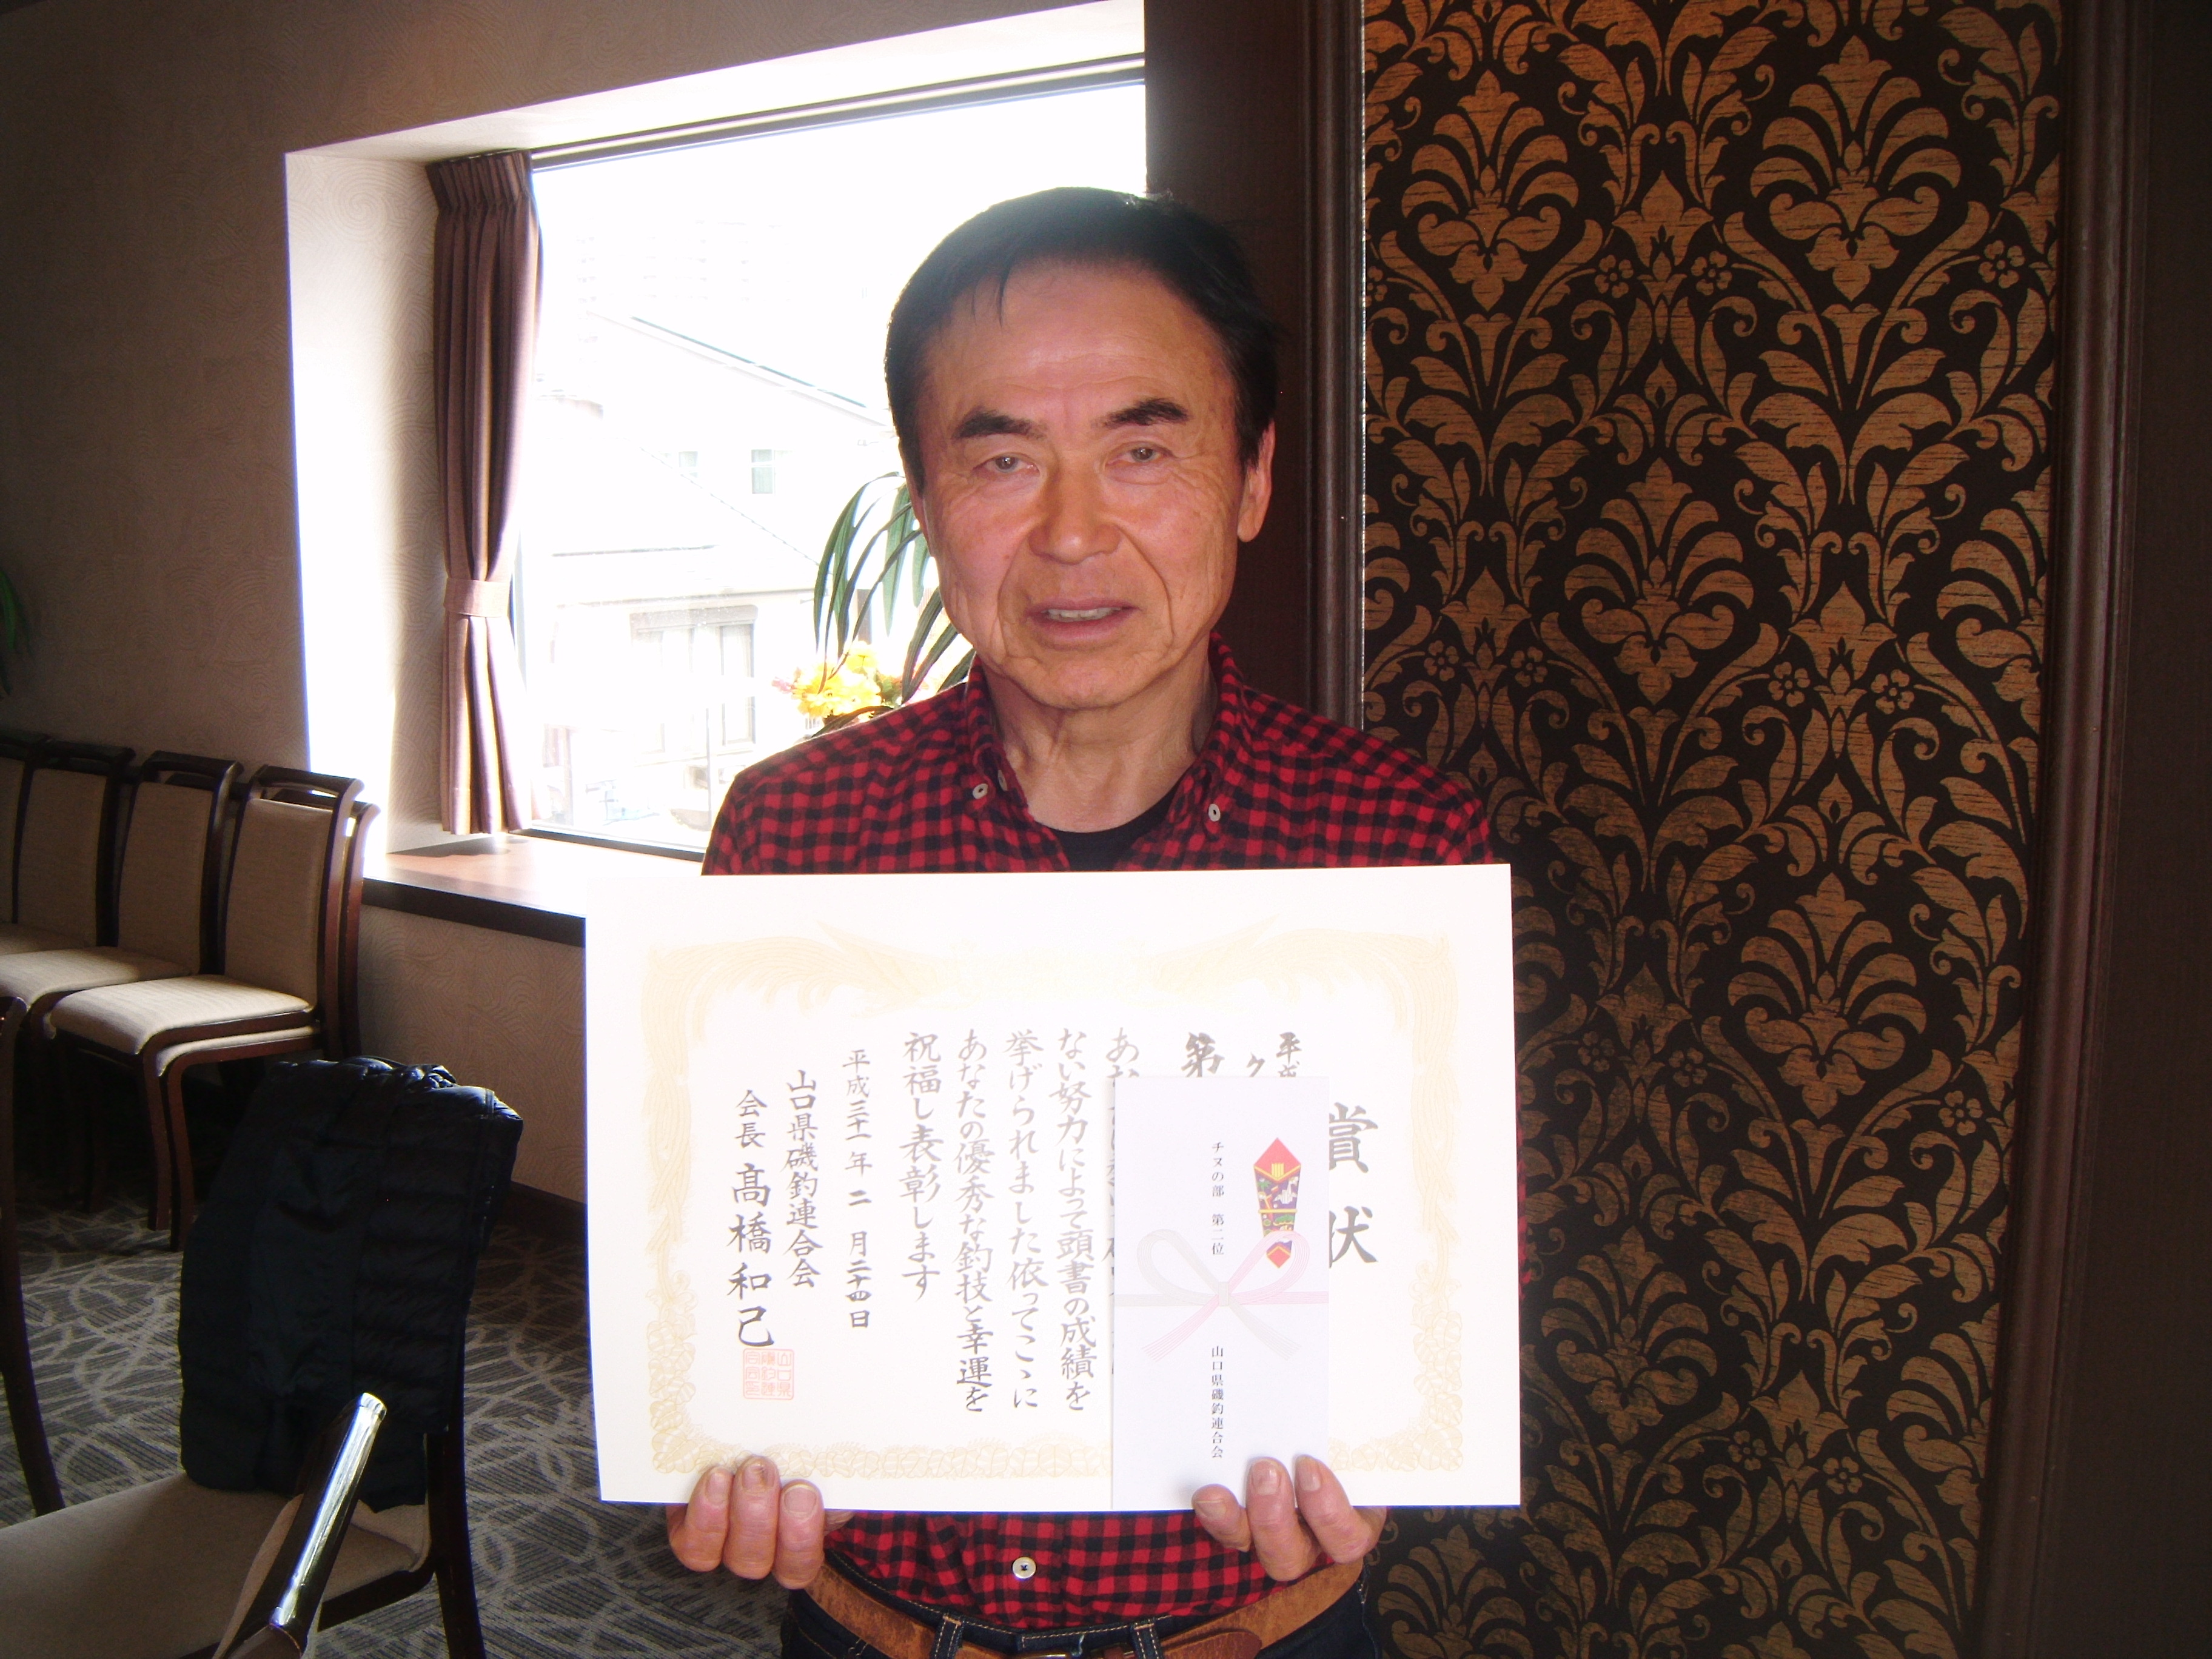 賞状
平成
ク
第
あ
ない努力によって頭書の成績を
挙げられました依ってここに
あなたの優秀な釣技と幸運を
祝福し表彰します
平成三十一年二月二十四日
山口県磯釣連合会
会長 髙橋和己
チヌの部 第二位
山口県磯釣連合会